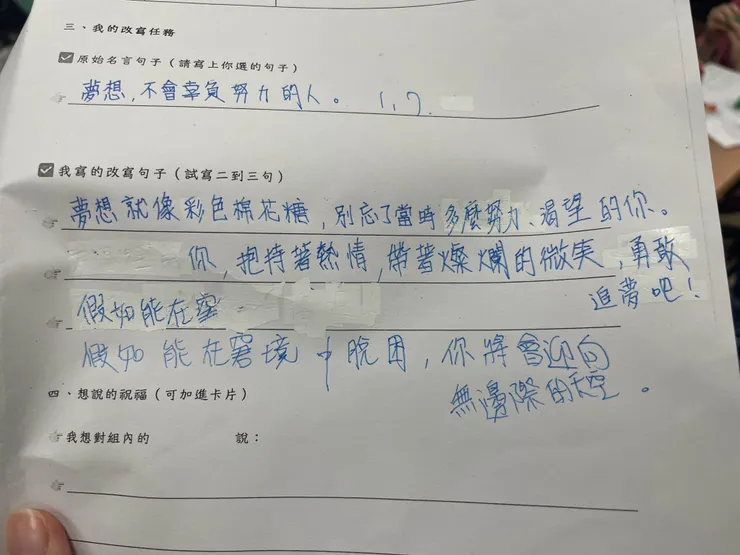 三、我的改寫任務
原始名言句子（請寫上你選的句子）
夢想，不會辜負努力的人。 1,7.
我寫的改寫句子（試寫二到三句）
夢想就像彩色棉花糖，別忘了當時多麼努力、渴望的你。
你，抱持著熱情，帶著燦爛的微笑，勇敢
追夢吧！
假如能在窘
假如能在窘境中脫困，你將會迎向
無邊際的天空。
四、想說的祝福（可加進卡片）
我想對組內的 說：